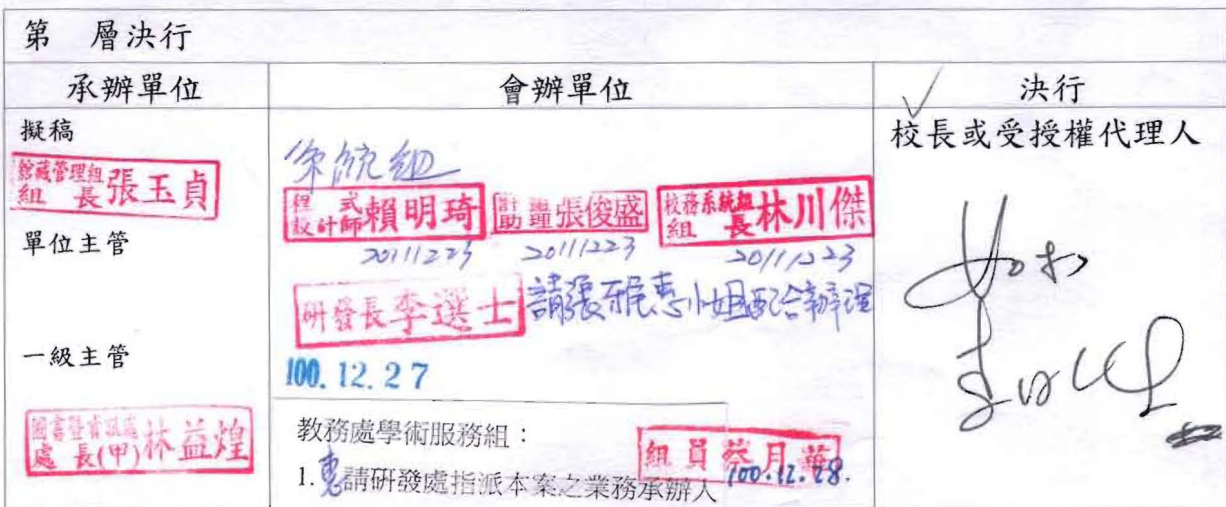 第 層決行
承辦單位
會辦單位
決行
擬稿
館藏管理組
組 長 張玉貞
單位主管
一級主管
圖書暨資訊處
處 長(甲) 林益煌
系統組
程 式
設計師 賴明琦
20111223
張俊盛
20111223
校務系統組
組 長 林川傑
20111223
研發長 李選士
請張雅惠小姐配合辦理
100.12.27
教務處學術服務組：
1.惠請研發處指派本案之業務承辦人
組員蔡月
100.12.28.
校長或受授權代理人